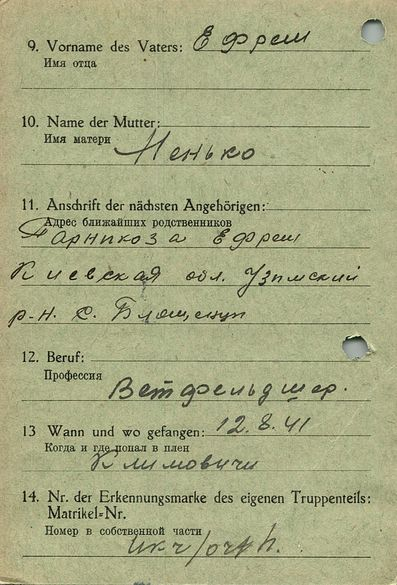 9. Vorname des Vaters: Ефрем
Имя отца
10. Name der Mutter:
Имя матери Менько
11. Anschrift der nächsten Angehörigen:
Адрес ближайших родственников
Гарникоза Ефрем
Киевская обл. Узинский
р-н. с. Блощенцы
12. Beruf:
Профессия
Ветфельдшер.
13 Wann und wo gefangen: 12.8.41
Когда и где попал в плен
Климовичи
14. Nr. der Erkennungsmarke des eigenen Truppenteils:
Matrikel=Nr.
Номер в собственной части